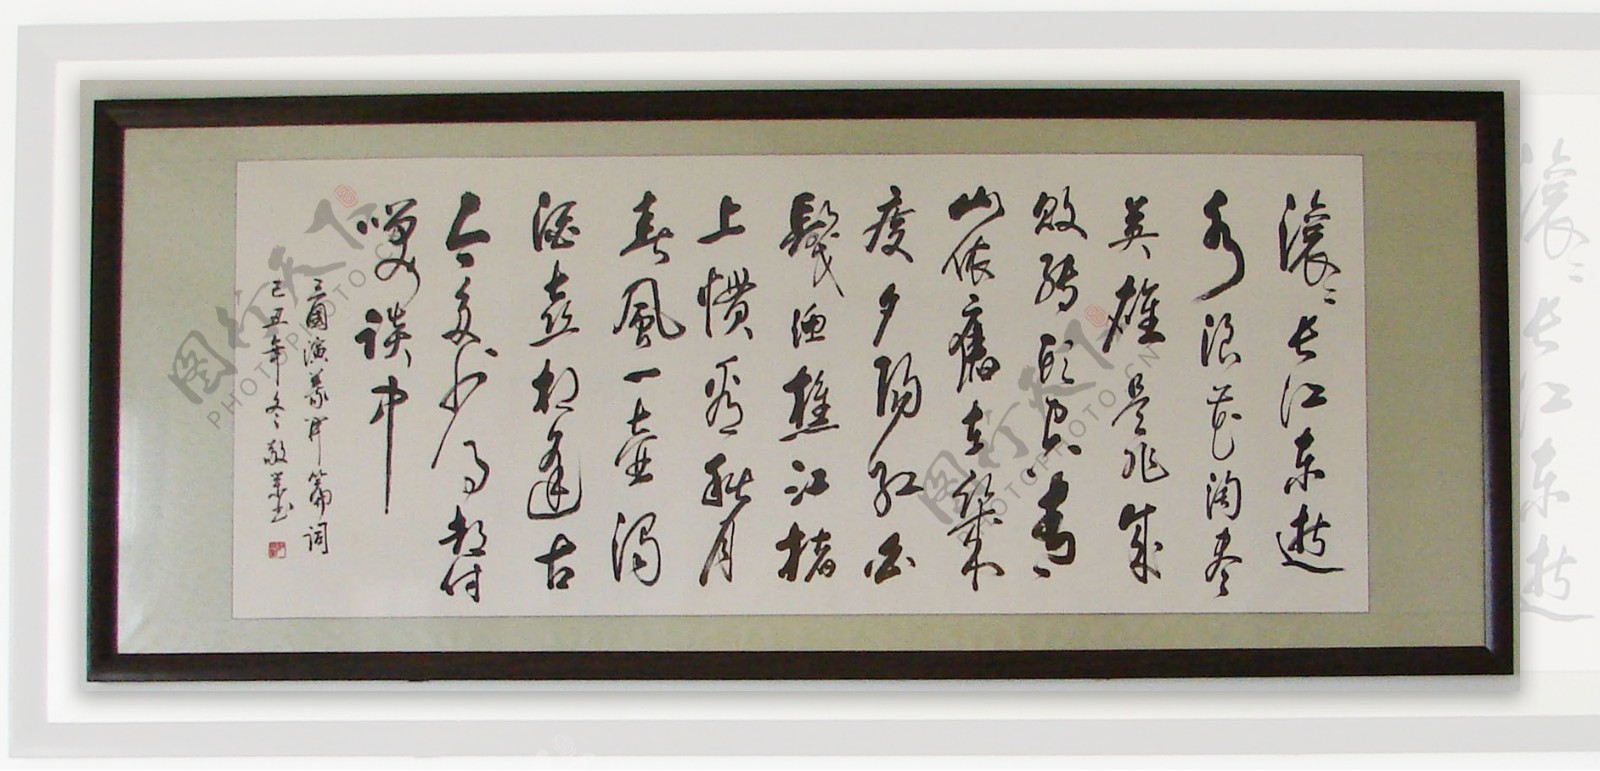 滚滚长江东逝
水浪花淘尽
英雄是非成
败转头空青
山依舊在幾
度夕陽红白
髮渔樵江渚
上惯看秋月
春風一壶浊
酒喜相逢古
今多少事都付
笑谈中
三國演義开篇词
己丑年冬敬
图行天下
PHOTOPHOTO.CN
图行天下
PHOTOPHOTO.CN
滚滚长江东逝